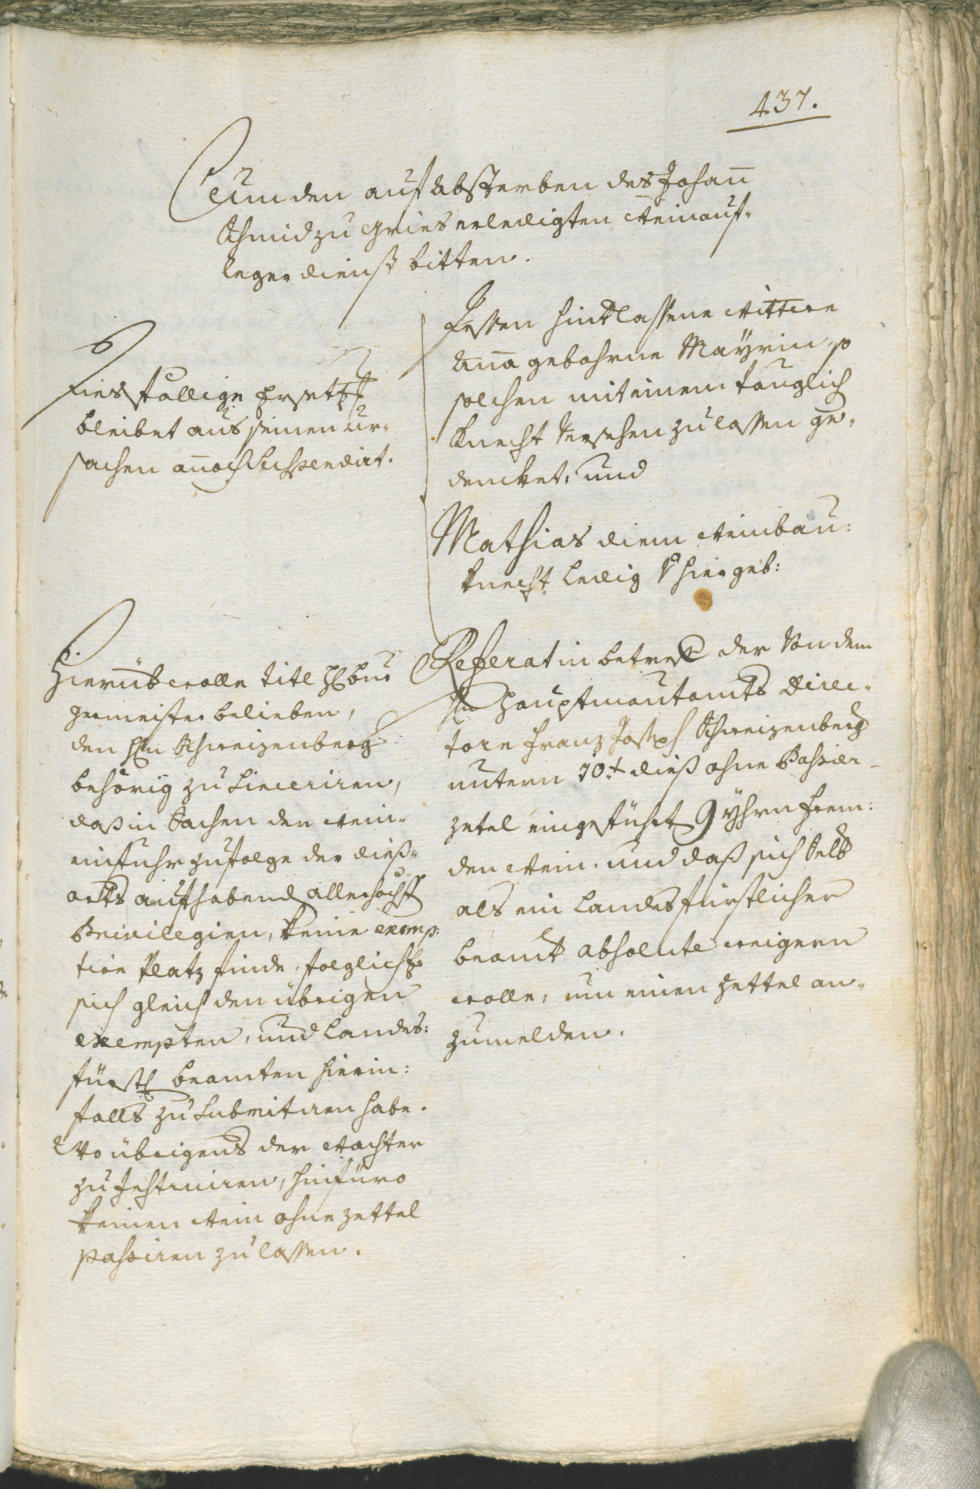 437.
Um den auf absterben des Johañ
Schmid zu Gries erledigten Weinauf-
leger dienst bitten.
Dessen hint̃lassene Wittwe
Aña gebohrne Mayrin, so
solchen mit einem tauglich
Knecht versehen zu lassen ge-
dencket, und
Mathias diem Weinbau:
knecht ledig hier geb:
diesfällige Ersetz
bleibet aus seinen ur-
sachen annoch suspendirt.
Referat in betref der von dem
Hauptmautamts Direc-
tore Franz Joseph Schweizenberg
untern 10t dieß ohne Passier-
zetel eingeführt 9 yhrn frem:
den Wein. und daß sich selb
als ein Landesfürstlicher
beamt absolute weigern
wolle, um einen zettel an-
zumelden.
Hierüber wolle titl H bur
germeister belieben,
den H Schweizenberg
behörig zu Sinceriren,
daß in Sachen der Wein-
einfuhr zufolge der dieß-
orts aufhabend allerhöchst
Privilegien, keine exemp-
tion Platz finde, folglich
sich gleich den übrigen
exempten, und Landes:
fürstl beamten hierin:
falls zu Submitiren habe.
Wo übrigens der Wachter
zu Instruiren, hinfüro
keinen Wein ohne zettel
passiren zu lassen.